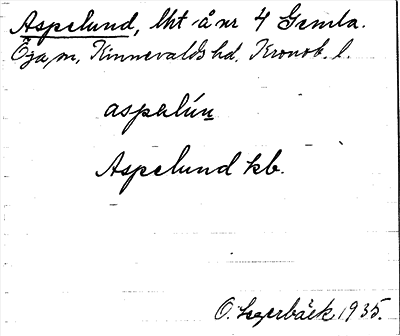 Aspelund, lht å nr 4 Gemla.
Öja sn, Kinnevalds hd, Kronob. l.
aspəlún
Aspelund kb.
O. Lagerbäck 1935.